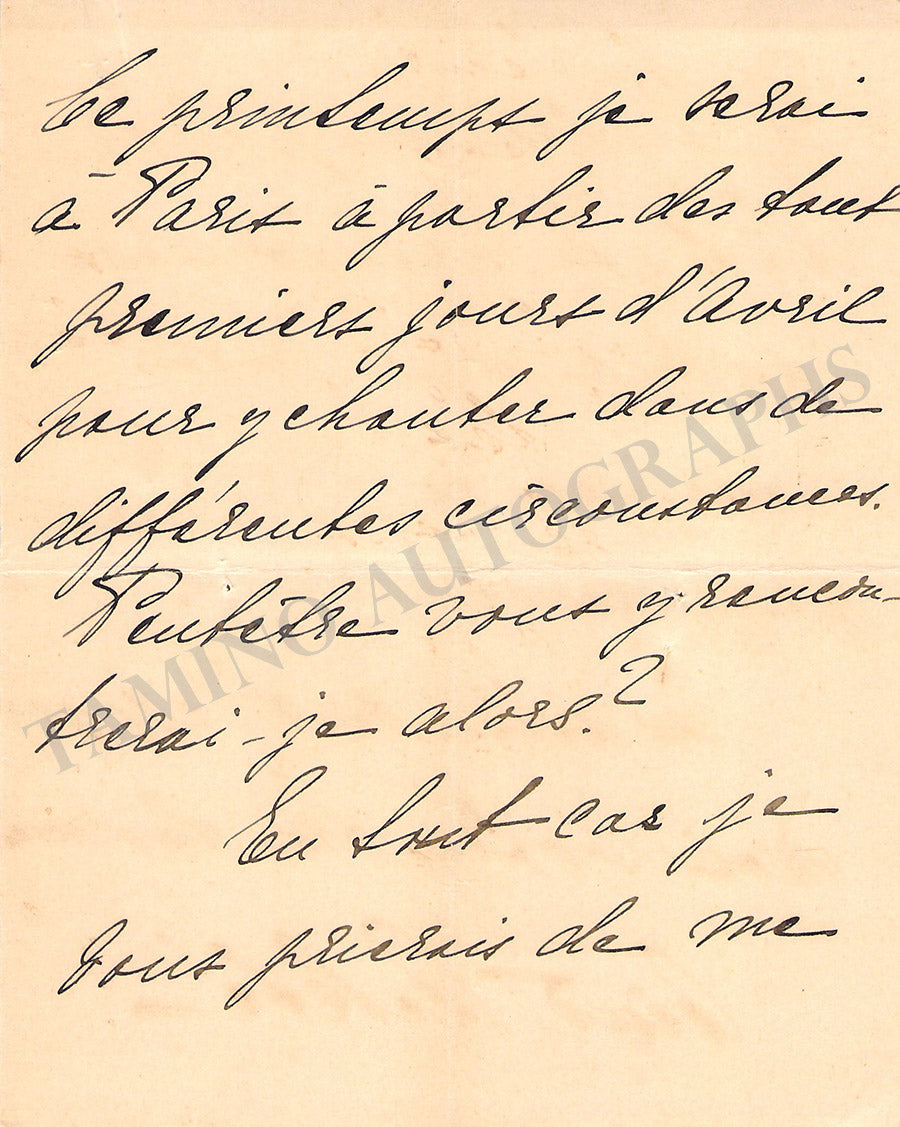 Ce printemps je serai
à Paris à partir des tout
premiers jours d'Avril
pour y chanter dans de
différentes circonstances.
Peutêtre vous y rencon-
trerai-je alors?
En tout cas je
vous prierais de me
TAMINO AUTOGRAPHS